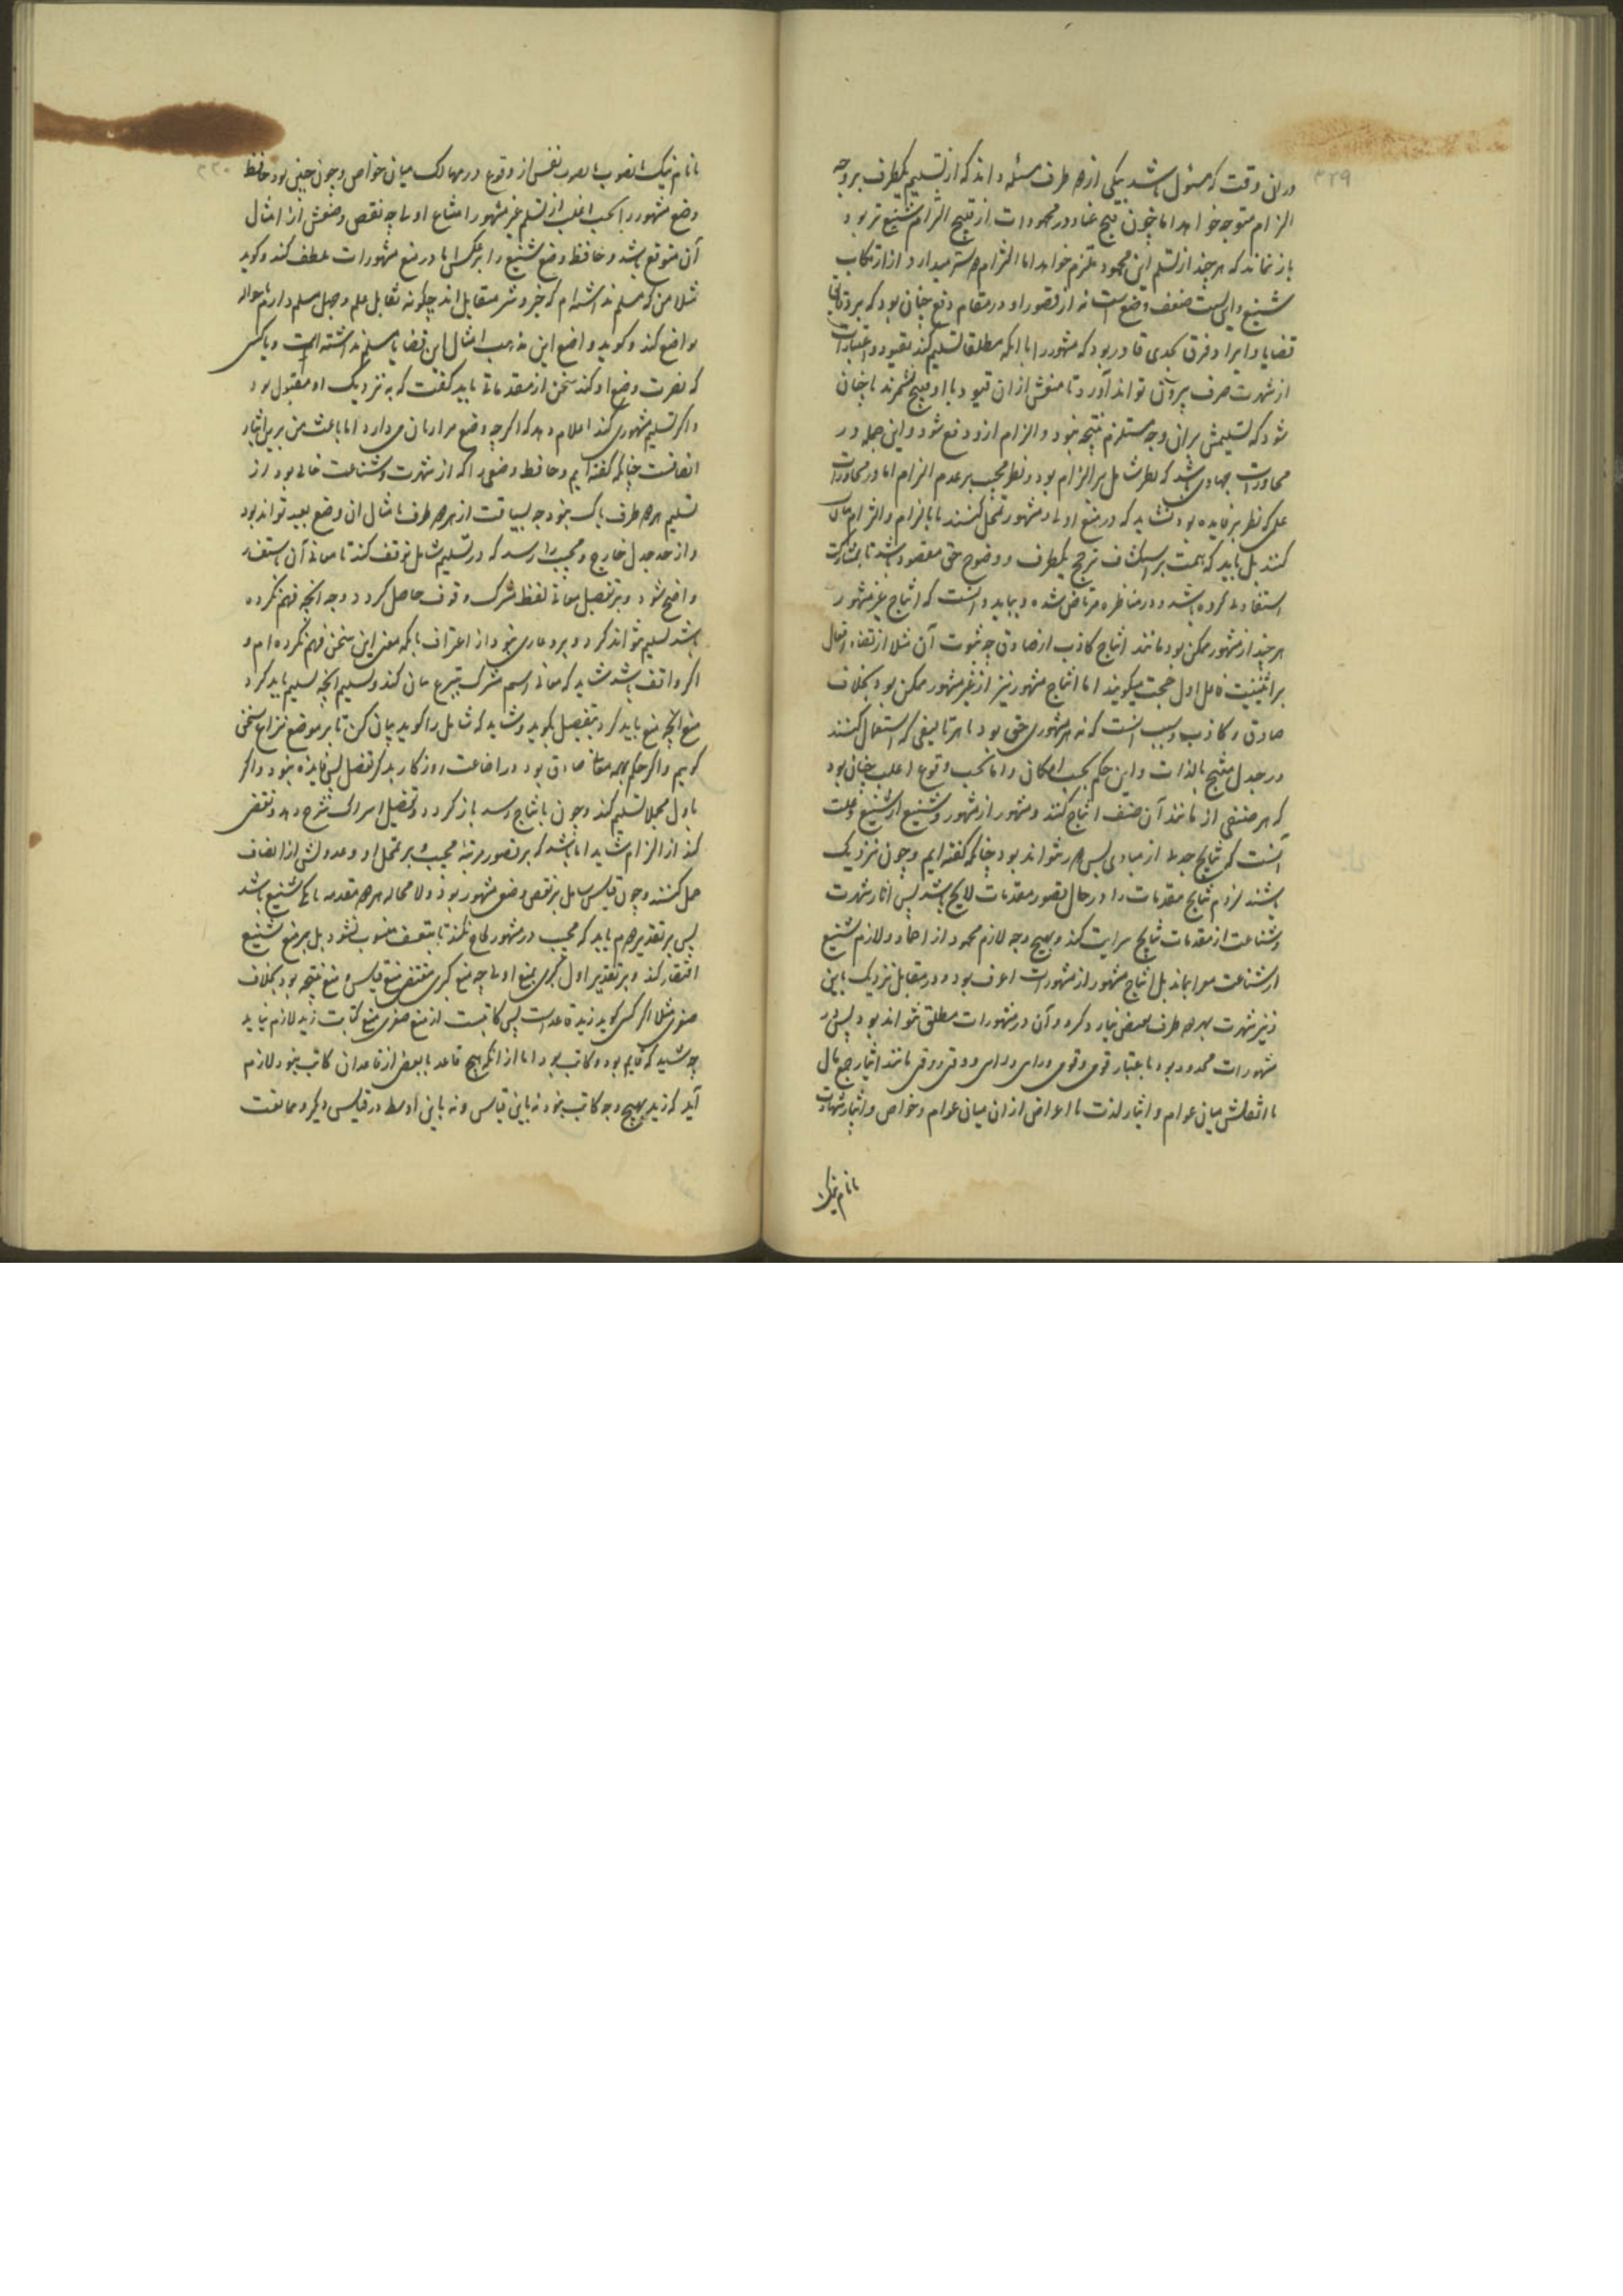 ۳۲۹
در آن وقت که مسئول باشد بیکی از هر دو طرف مسئله داند که از تسلیم یکطرف بر وجه
الزام متوجه خواهد اما چون قبح عناد در محمودات از قبح التزام شنیع تر بود
باز نماند که هر چند از تسلیم این محمود ملزم خواهد اما التزام دوستر میدارد از ارتکاب
شنیع و این بسبب ضعف وضع است نه از قصور او و در مقام دفع چنان بود که بر
قضایا و ایراد فرق بحدی قادر بود که مشهور را با آنکه مطلقا تسلیم کند بقیود و اعتبارات
از شهرت صرف بیرون تواند آورد تا منعش از آن قیود با او قبیح نشمرند یا چنان
شود که تسلیمش بر آن وجه مستلزم نتیجه نبود و الزام ازو دفع شود و این جمله در
محاورات جهادی باشد که نظر سائل بر الزام بود و نظر مجیب بر عدم الزام اما در محاورات
علمی که نظر بر فایده بود نشاید که در منع اولی و مشهور تمحل کنند یا بالزام و التزام مبالات
کنند بل باید که همت بر استکشاف ترجیح یکطرف و وضوح حق مقصور باشد تا بمشارکت
استفادتی کرده باشند و در مناظره مرتاض شده و بباید دانست که انتاج غیر مشهور
هر چند از مشهور ممکن بود مانند انتاج کاذب از صادق چه ثبوت آن مثلا اقتضاء انفعال
بر اثنینیت فاعل اول حجت میگویند اما انتاج مشهور نیز از غیر مشهور ممکن بود بخلاف
صادق و کاذب و سبب آنست که نه هر مشهوری حق بود یا هر تالیفی که استعمال کنند
در جدل منتج بالذات و این حکم بحسب امکان و اما بحسب وقوع اغلب چنان بود
که هر صنفی از مانند آن صنف انتاج کنند و مشهور از مشهور و شنیع از شنیع و علت
آنست که نتایج جدلی از مبادی بس دور نتواند بود چنانکه گفته ایم و چون نزدیک
باشند لزوم نتایج مقدمات را در حال تصور مقدمات لایح باشد پس آثار شهرت
و شناعت از مقدمات بنتایج سرایت کند و بهیچ وجه لازم محمود از احماد و لازم شنیع
از شناعت معرا نماند بل انتاج مشهور از مشهورات اعرف بود و در مقابل نزدیک باین
و نیز شهرت بهر دو طرف نقیض نیارد کرد و آن در مشهورات مطلق نتواند بود پس در
مشهورات محدود بود باعتبار قومی و قومی و رای و رای و وقتی و وقتی مانند ایثار جمع مال
یا انفاقش میان عوام و ایثار لذت یا اعراض از آن میان عوام و خواص و ایثار شهادت
با نام نیک
۳۳۰
با نام نیک یا هرب نفس از وقوع در مهالک میان خواص و چون چنین بود حافظ
وضع مشهور را بحسب اغلب از تسلیم غیر مشهور امتناع اولی چه نقض وضعش از امثال
آن متوقع باشد و حافظ وضع شنیع را بر عکس یا در منع مشهورات تلطف کند و گوید
مثلا من که مسلم نداشته ام که خیر و شر متقابل اند چگونه تقابل علم و جهل مسلم دارم یا حواله
بواضع کند و گوید واضع این مذهب امثال این قضایا مسلم نداشته است و یا کسی
که نصرت وضع او کند سخن از مقدماتی باید گفت که به نزدیک او مقبول بود
و اگر تسلیم مشهوری کند اعلام دهد که اگر چه وضع مرا زیان می دارد اما باعث من برین ایثار
انصافست چنانکه گفته ایم و حافظ وضعی را که از شهرت و شناعت خالی بود از
تسلیم هر دو طرف باک نبود چه لیاقت از هر دو طرف با مثال آن وضع بعید تواند بود
و از حد جدل خارج و مجیب را رسد که در تسلیم سائل توقف کند تا معانی آن باستفسار
واضح شود و بر تفصیل معانی لفظ مشترک وقوف حاصل گردد و چه آنچه فهم نکرده
باشد تسلیم نتواند کرد و برو عاری نبود از اعتراف بآنکه معنی این سخن فهم نکرده ام و
اگر واقف باشد شاید که معانی اسم مشترک بتبرع بیان کند و تسلیم آنچه تسلیم باید کرد
و منع آنچه منع باید کرد بتفصیل بگوید و شاید که سائل را گوید بیان کن تا بر موضع نزاع سخن
گوییم و اگر حکم بهمه معانی صادق بود در اضاعت روزگار بذکر تفصیل بس فایده نبود و اگر
باول مجملا تسلیم کند و چون بانتاج رسد باز گردد و تفصیل اسراک شرح دهد و نقض
کند از الزام شاید اما باشد که بر قصور مرتبه مجیب و بر تمحل او و عدولش از انصاف
حمل کنند و چون قیاس سائل بر نقض وضعی مشهور بود و لا محاله هر دو مقدمه یا یکی شنیع باشد
پس بر تقدیر دوم باید که مجیب در مشهور لجاج نکند تا بتعسف منسوب نشود بل بر منع شنیع
اقتصار کند و بر تقدیر اول کبری بمنع اولی چه منع کبری مقتضی منع قیاس و منع نتیجه بود بخلاف
صغری مثلا اگر کسی گوید زید قاعد است پس کاتبست از منع صغری منع کتابت زید لازم نیاید
چه شاید که قایم بود و کاتب بود اما از آنکه هیچ قاعد یا بعضی از قاعدان کاتب نبود لازم
آید که زید بهیچ وجه کاتب نبود نه باین قیاس و نه باین اوسط در قیاسی دیگر و ممانعت